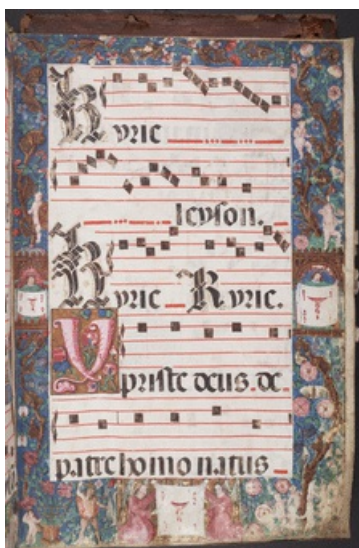 Kyrie
leyson.
Kyrie Kyrie.
Xpriste deus. de
patre homo natus